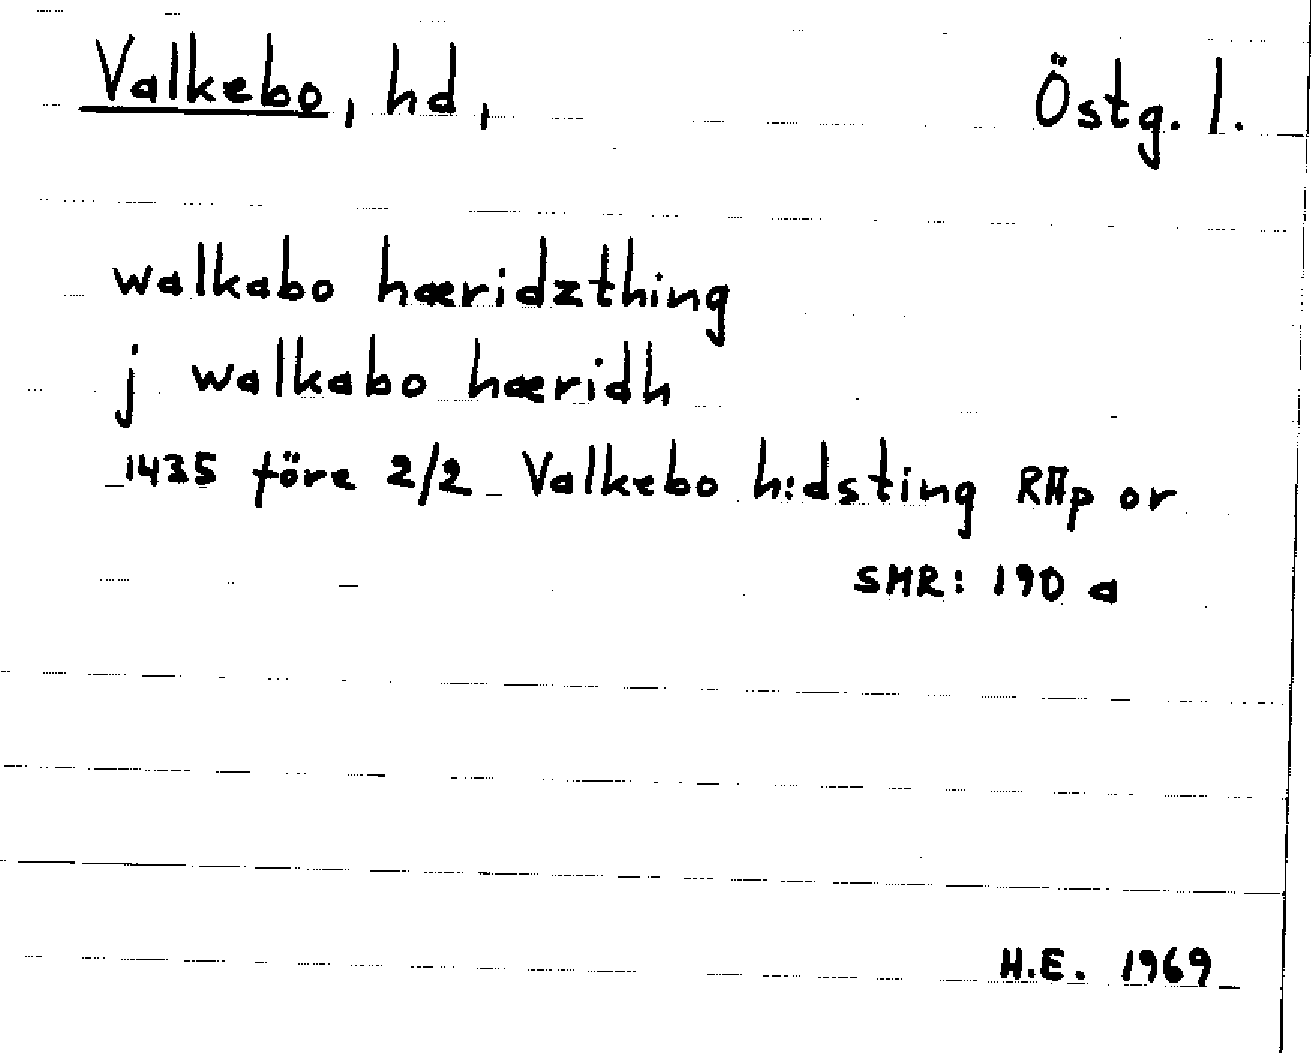 Valkebo, hd, Östg. l.
walkabo hæridzthing
j walkabo hæridh
1435 före 2/2 Valkebo h:dsting RAp or
SMR: 190 a
H.E. 1969